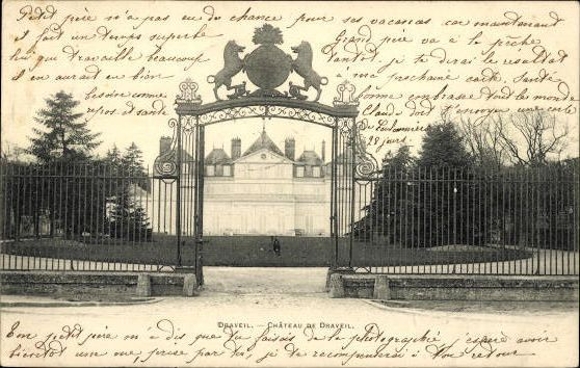 Petit père n'a pas eu de chance pour ses vacances car maintenant
il fait un temps superbe
lui qui travaille beaucoup
il en aurait eu bien
besoin comme
repos et santé
Grand père va à la pêche
tantôt, je te dirai le résultat
à ma prochaine carte. Santé
bonne embrasse tout le monde
Claude doit t'envoyer une carte
de
28 jours.
DRAVEIL. — CHÂTEAU DE DRAVEIL.
Ton petit père m'a dis que tu faisais de la photographie j'espère avoir
bientôt une vue, prise par toi, je te récompenserai à ton retour